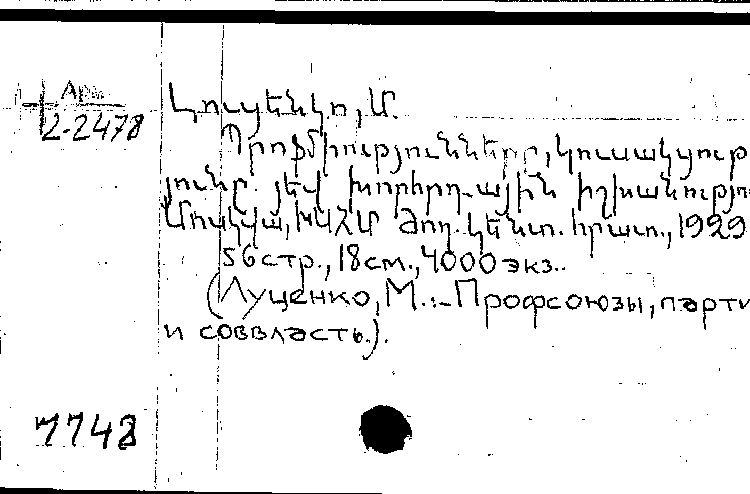 Арм
2-2478
Լուցենկո, Մ.
Պրոֆմիություննները, կուսակցութ
յունը. յեվ խորհրդ-ային իշխանությու
Մոսկվա, ԽՍՀՄ Ժող. կենտ. հրատ., 1929
56стр., 18см., 4000экз..
(Луценко, М.:-Профсоюзы, парти
и соввласть.).
7748